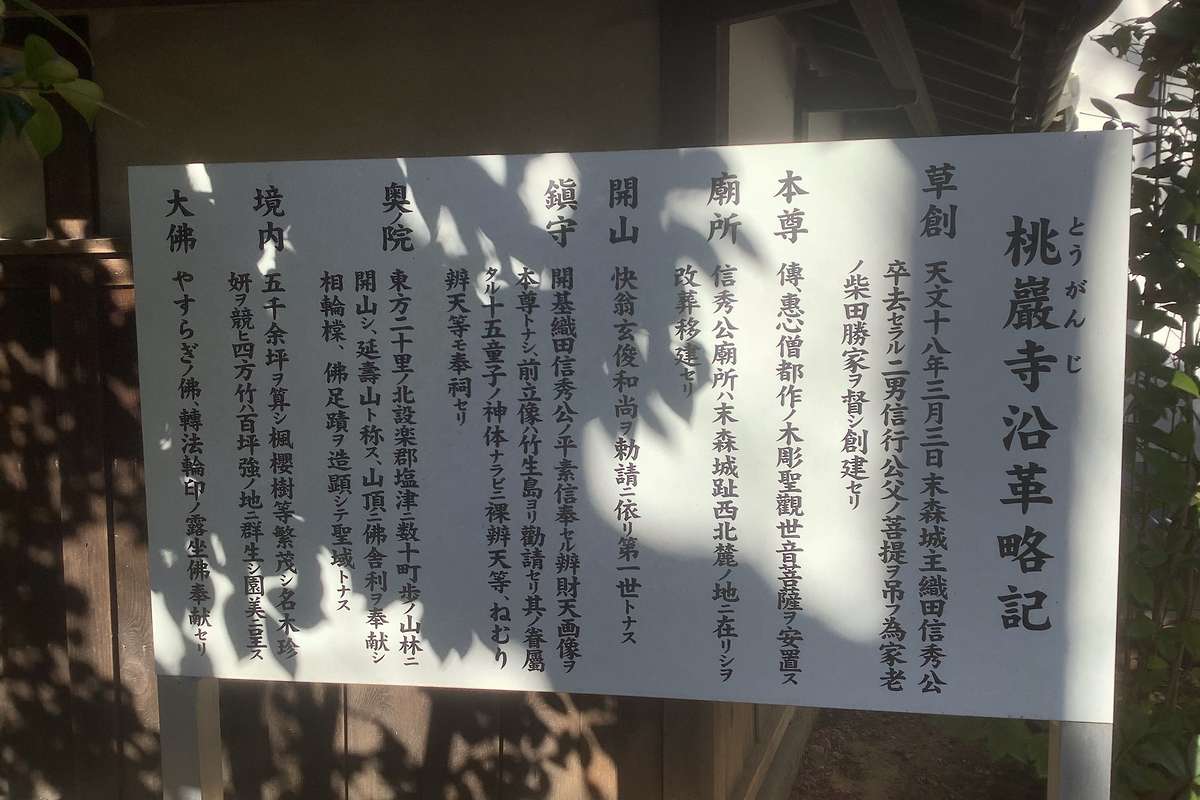 とうがんじ
桃巖寺沿革略記
草創 天文十八年三月三日末森城主織田信秀公
卒去セラル二男信行公父ノ菩提ヲ吊フ為家老
ノ柴田勝家ヲ督シ創建セリ
本尊 傳、惠心僧都作ノ木彫聖觀世音菩薩ヲ安置ス
廟所 信秀公廟所ハ末森城趾西北麓ノ地ニ在リシヲ
改葬移建セリ
開山 快翁玄俊和尚ヲ勅請ニ依リ第一世トナス
鎭守 開基織田信秀公ノ平素信奉セル辨財天画像ヲ
本尊トナシ、前立像ハ竹生島ヨリ勸請セリ其ノ眷屬
タル十五童子ノ神体ナラビニ裸辨天等、ねむり
辨天等モ奉祠セリ
奥ノ院 東方二十里ノ北設楽郡塩津ニ数十町歩ノ山林ニ
開山シ、延壽山ト称ス、山頂ニ佛舎利ヲ奉献シ
相輪樘、佛足蹟ヲ造顕シテ聖域トナス
境内 五千余坪ヲ算シ楓櫻樹等繁茂シ名木珍
妍ヲ競ヒ四方竹ハ百坪強ノ地ニ群生シ園美ニ呈ス
大佛 やすらぎノ佛、轉法輪印ノ露坐佛奉献セリ